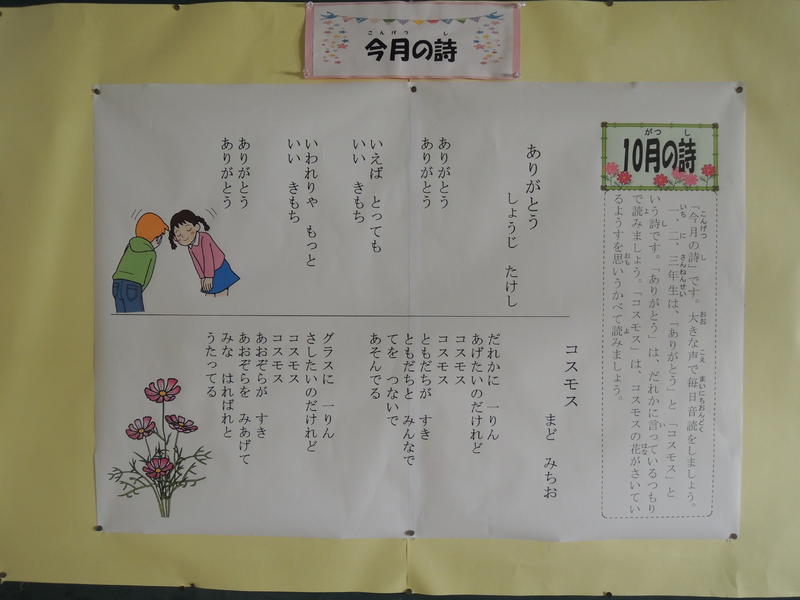 今月の詩
10月の詩
「今月の詩」です。大きな声で毎日音読をしましょう。
一、二、三年生は、「ありがとう」と「コスモス」と
いう詩です。「ありがとう」は、だれかに言っているつもり
で読みましょう。「コスモス」は、コスモスの花がさいてい
るようすを思いうかべて読みましょう。
ありがとう
しょうじ たけし
ありがとう
ありがとう
いえば とっても
いい きもち
いわれりゃ もっと
いい きもち
ありがとう
ありがとう
コスモス
まど みちお
だれかに 一りん
あげたいのだけれど
コスモス
コスモス
ともだちが すき
ともだちと みんなで
てを つないで
あそんでる
グラスに 一りん
さしたいのだけれど
コスモス
コスモス
あおぞらが すき
あおぞらを みあげて
みな はればれと
うたってる